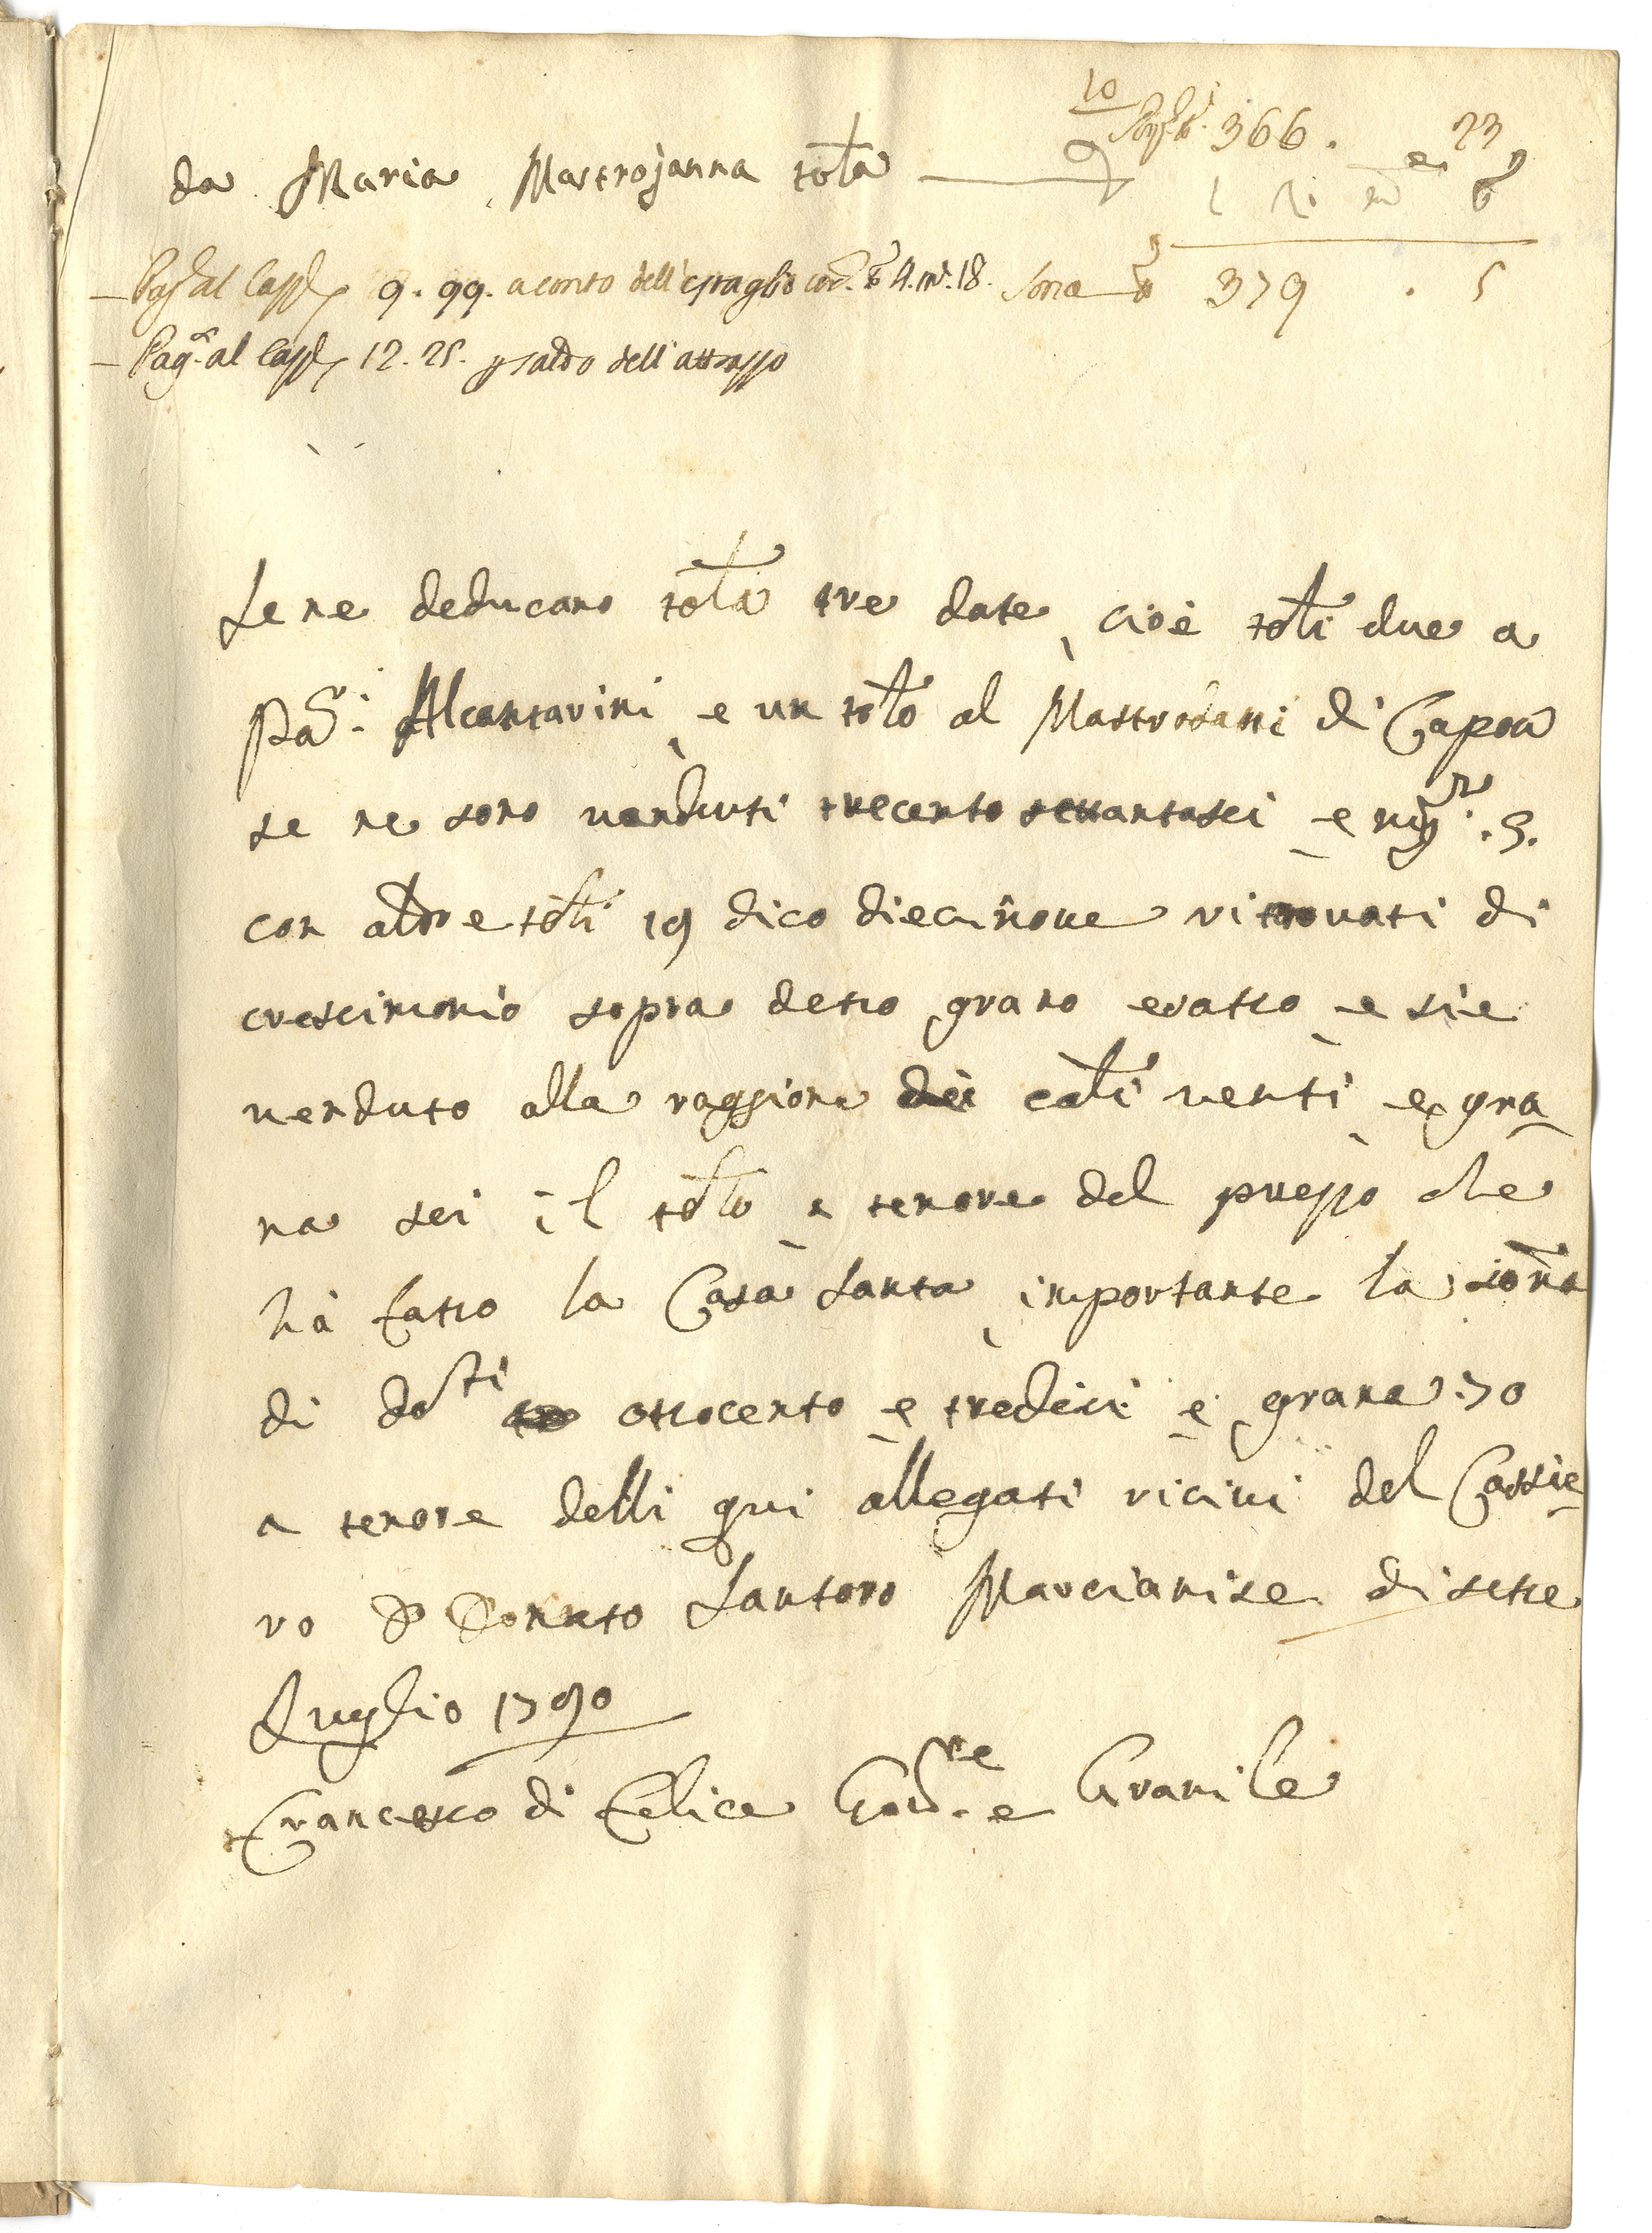 10
Somᵃ tᵃ. 366. 23
da Maria Mastrojanna totᵃ 9
Somᵃ tᵃ 379 . 5
– Pagᵗⁱ al Cass.ᵉ 9. 99. a conto dell'estaglio
– Pagᵗⁱ al Cass.ᵉ 12. 25. p saldo dell'attrasso
Se ne deducano tolᵃ tre date, cioè tolⁱ due a
Pad.ⁱ Alcantarini, e un tolᵒ al Mastrodatti di Capoa
se ne sono venduti trecento settantasei e mis.ʳᵉ .5.
con altre tolⁱ 19 dico diecinove ritrovati di
crescimonio sopra detto grano esatto, e si è
venduto alla raggione di calⁱ venti, e gra
na sei il tolᵒ a tenore del prezzo che
hà fatto la Casa Santa, importante la som̄a
di doᵗⁱ ottocento e tredici e grana 70
a tenore delli qui allegati riciui del Cassie
ro D Donato Santoro Marcianise di sette
Luglio 1790
Francesco di Felice Govʳᵉ. e Granile